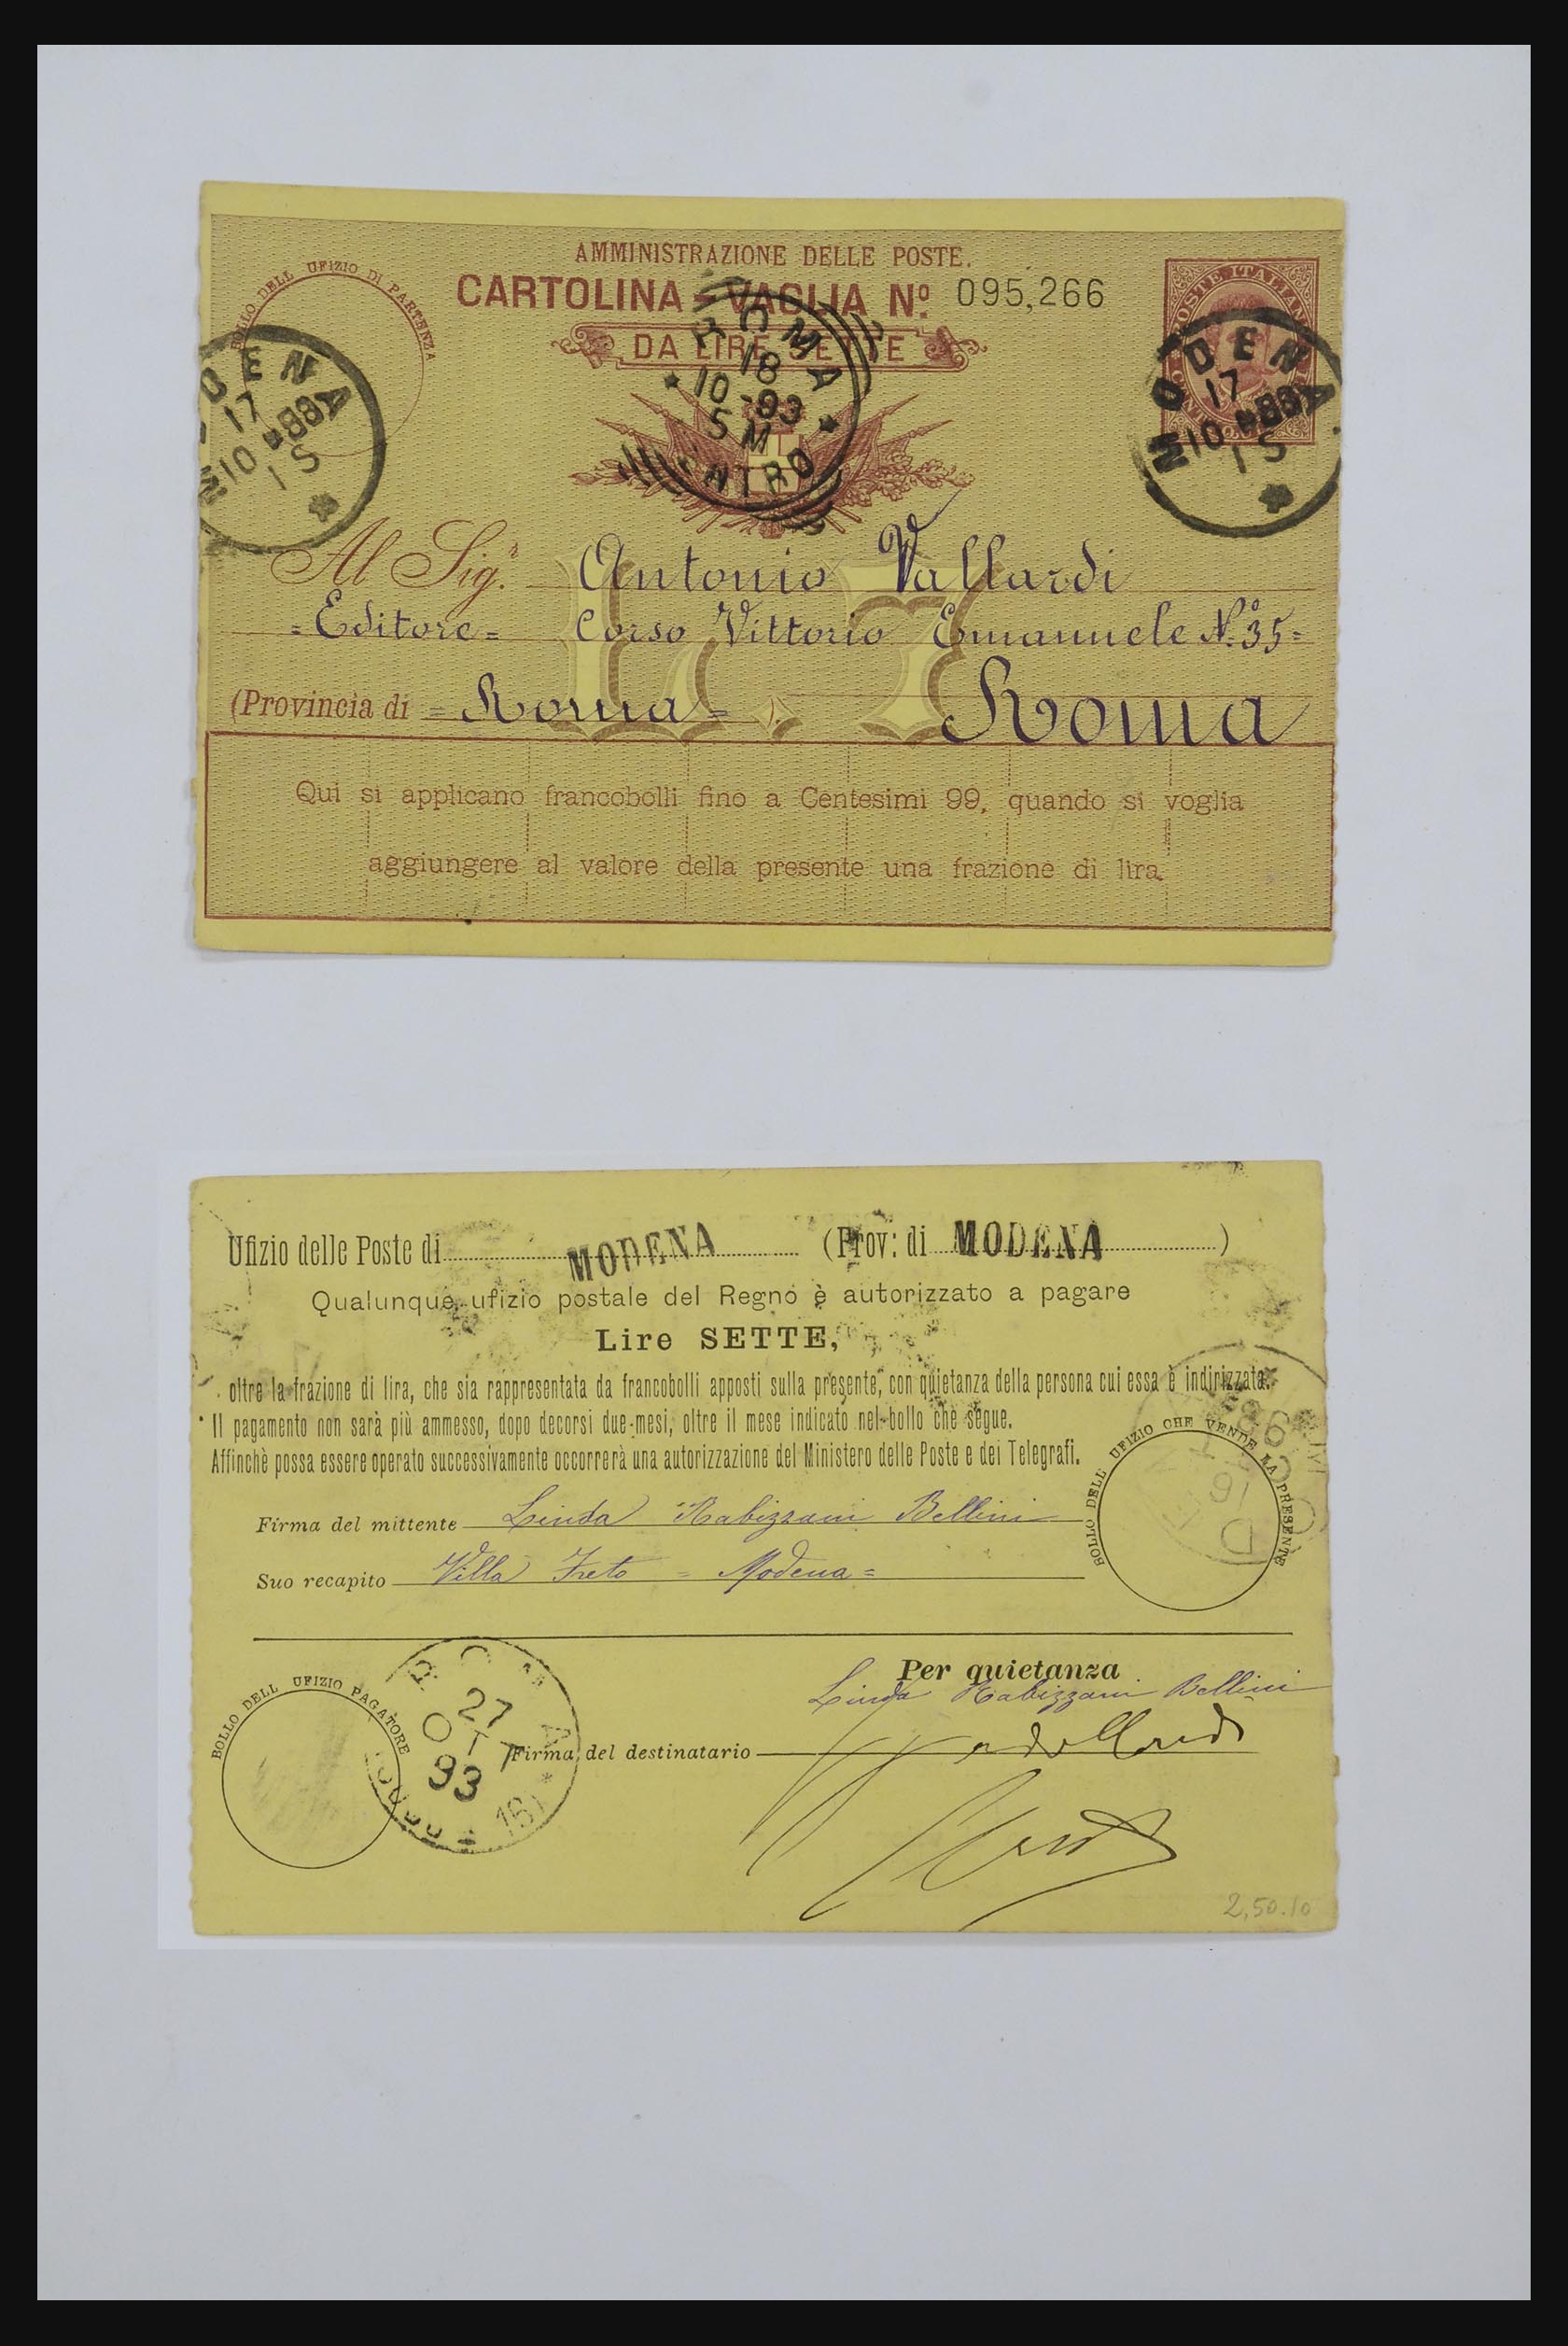 AMMINISTRAZIONE DELLE POSTE.
CARTOLINA-VAGLIA Nº 095,266
DA LIRE SETTE
BOLLO DELL UFIZIO DI PARTENZA
POSTE ITALIANE
MODENA
17
10-93
1S
ROMA
18
10-93
5M
CENTRO
MODENA
17
10-93
1S
L. 7
Al Sig.r Antonio Vallardi
=Editore= Corso Vittorio Emanuele Nº 35=
(Provincia di =Roma= ). Roma
Qui si applicano francobolli fino a Centesimi 99, quando si voglia
aggiungere al valore della presente una frazione di lira.
Ufizio delle Poste di MODENA (Prov: di MODENA)
Qualunque ufizio postale del Regno è autorizzato a pagare
Lire SETTE,
oltre la frazione di lira, che sia rappresentata da francobolli apposti sulla presente, con quietanza della persona cui essa è indirizzata.
Il pagamento non sarà più ammesso, dopo decorsi due mesi, oltre il mese indicato nel bollo che segue.
Affinchè possa essere operato successivamente occorrerà una autorizzazione del Ministero delle Poste e dei Telegrafi.
BOLLO DELL UFIZIO CHE VENDE LA PRESENTE
Firma del mittente Linda Rabizzani Bellini
Suo recapito Villa Freto = Modena =
Per quietanza
Linda Rabizzani Bellini
BOLLO DELL UFIZIO PAGATORE
ROMA
27
OTT
93
Firma del destinatario
2,50.10